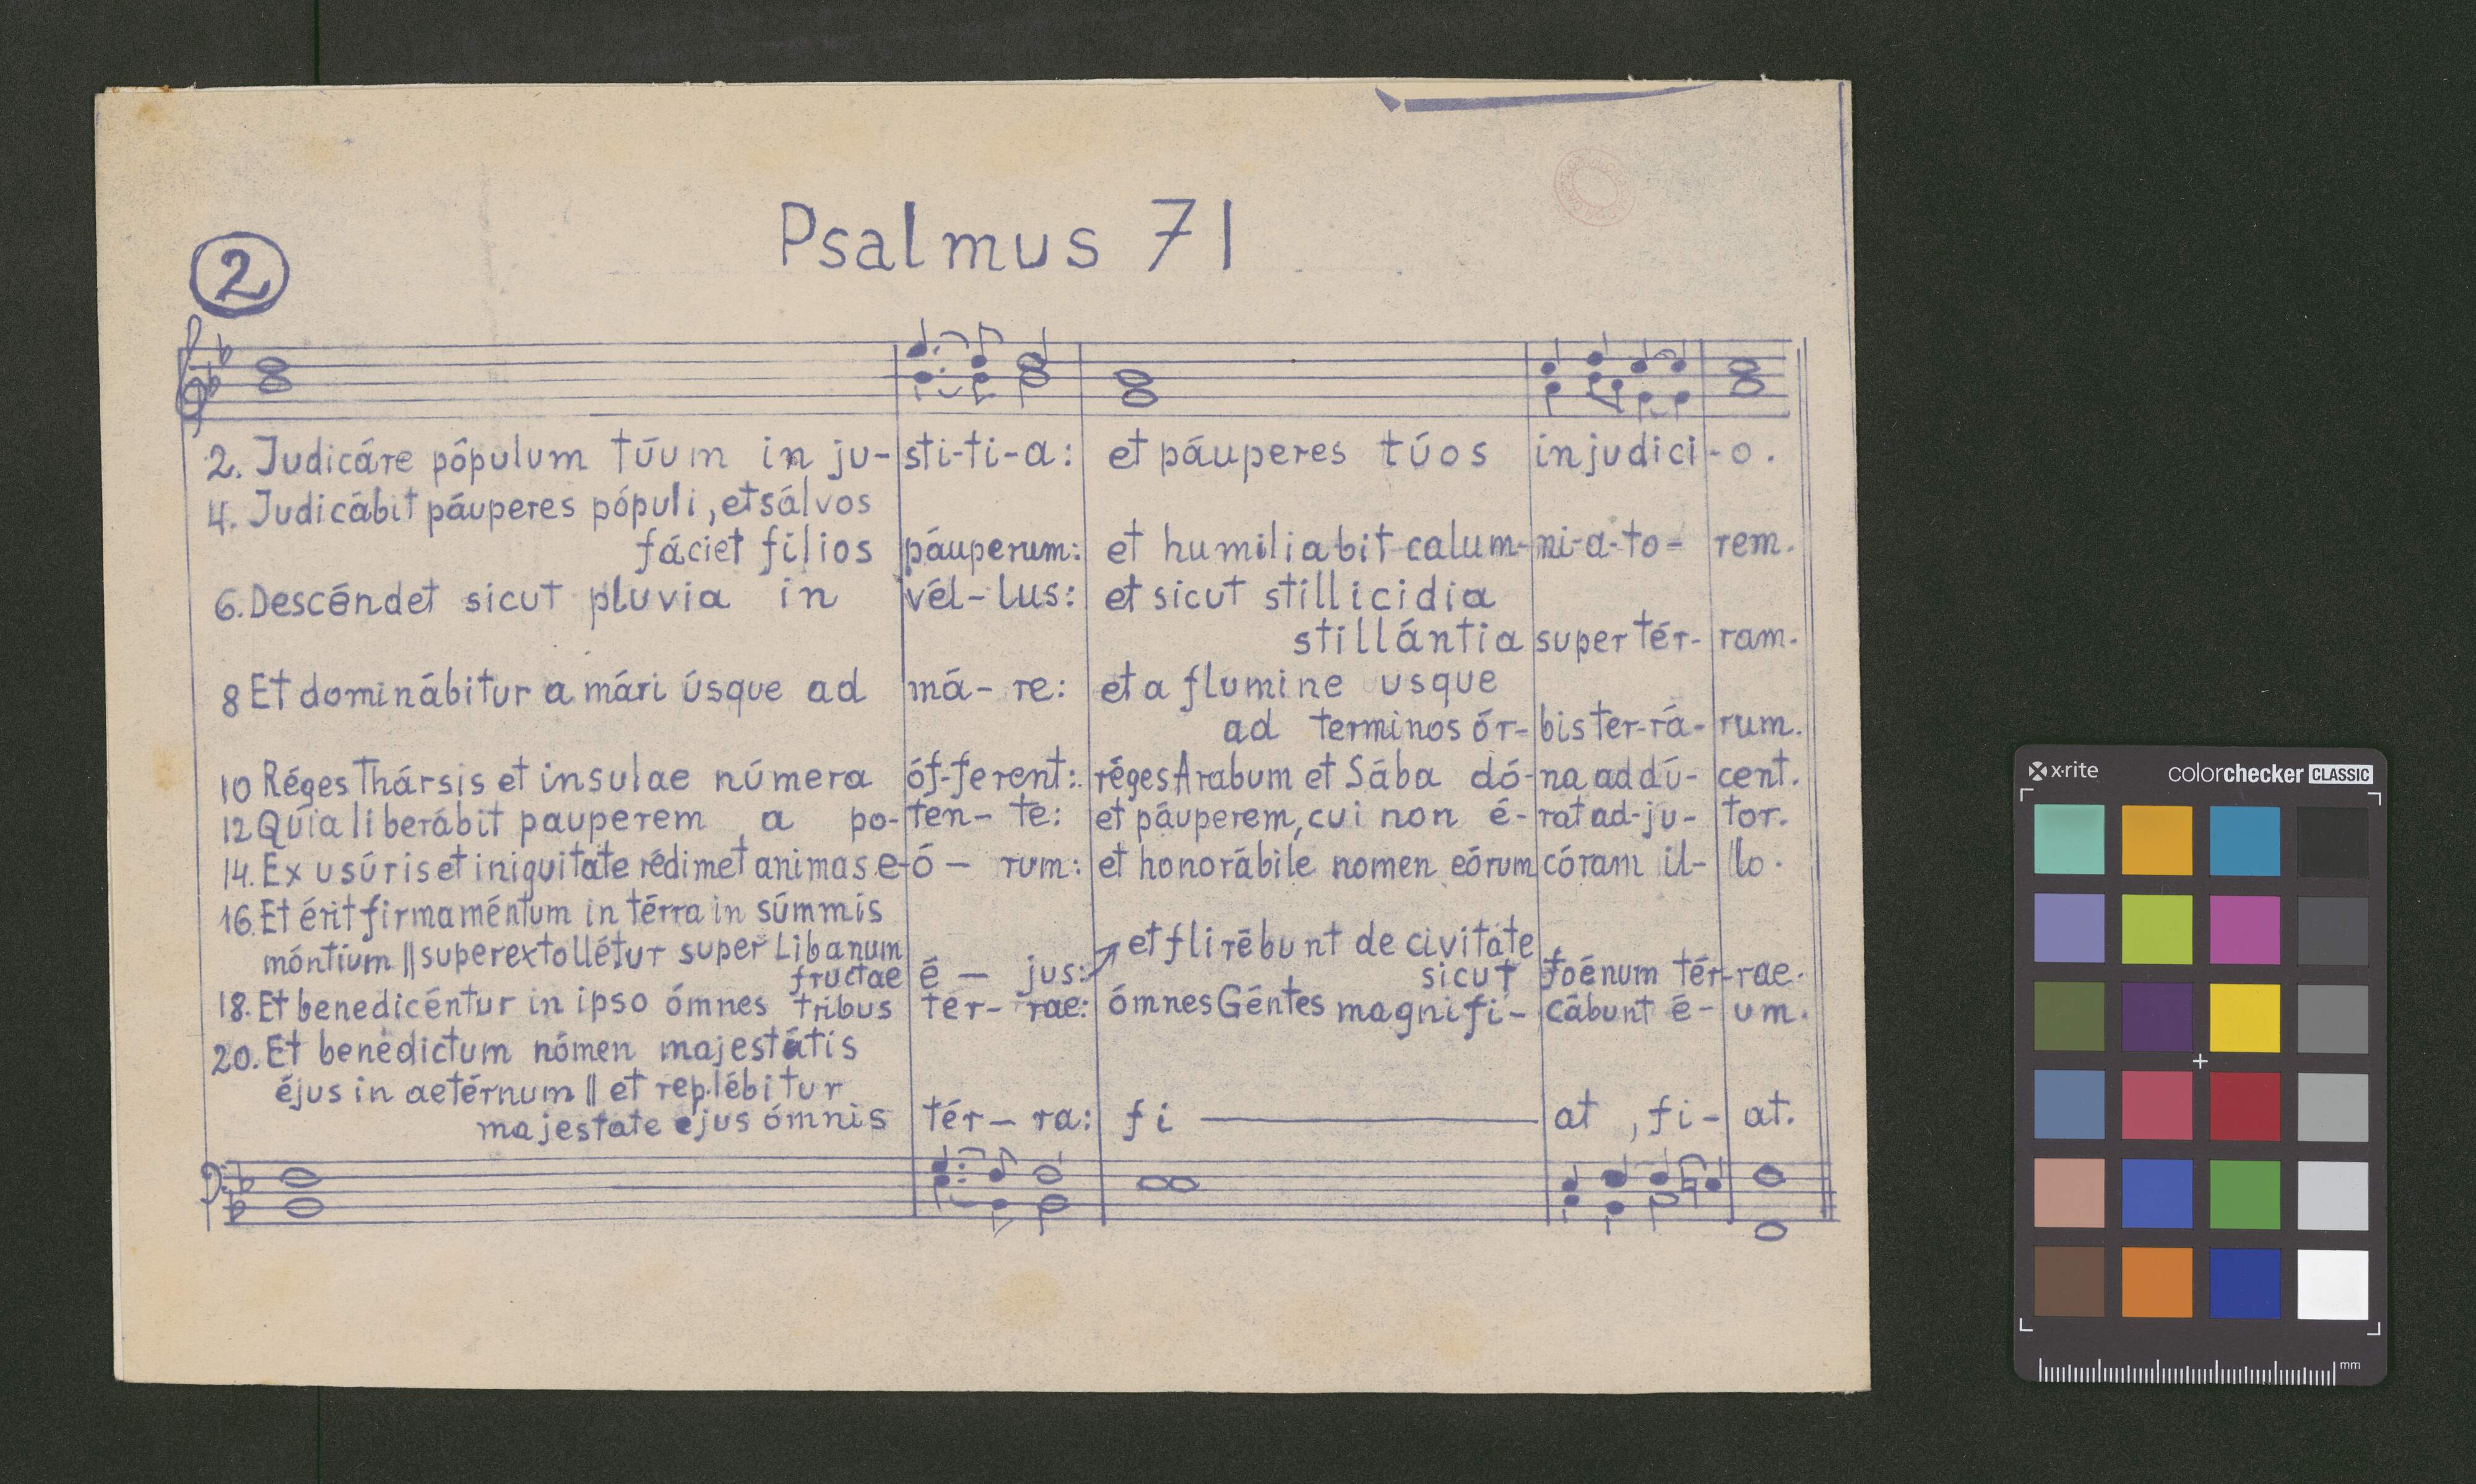 Psalmus 71
2
2. Judicáre pôpulum túum in ju-sti-ti-a: et páuperes túos in judici-o.
4. Judicábit páuperes pópuli, et sálvos
fáciet filios páuperum: et humiliabit calum-ni-a-to-rem.
6. Descéndet sicut pluvia in vél-lus: et sicut stillicidia
stillántia super tér-ram.
8 Et dominábitur a mári úsque ad má-re: et a flumine usque
ad terminos ór-bis ter-rá-rum.
10 Réges Thársis et insulae númera óf-ferent: réges Arabum et Sába dó-na ad dú-cent.
12 Qúia liberábit pauperem a po-ten-te: et páuperem, cui non é-rat ad-ju-tor.
14. Ex usúris et iniquitate rédimet animas e-ó-rum: et honorábile nomen eórum córam il-lo.
16. Et érit firmaméntum in térra in súmmis
móntium || superextollétur super Libanum
fructae é-jus: et flirébunt de civitáte
sicut foénum tér-rae.
18. Et benedicéntur in ipso ómnes tribus tér-rae: ómnes Géntes magnifi-cábunt é-um.
20. Et benedictum nómen majestátis
éjus in aetérnum || et replébitur
majestate ejus ómnis tér-ra: fi at, fi-at.
x-rite colorchecker CLASSIC
mm